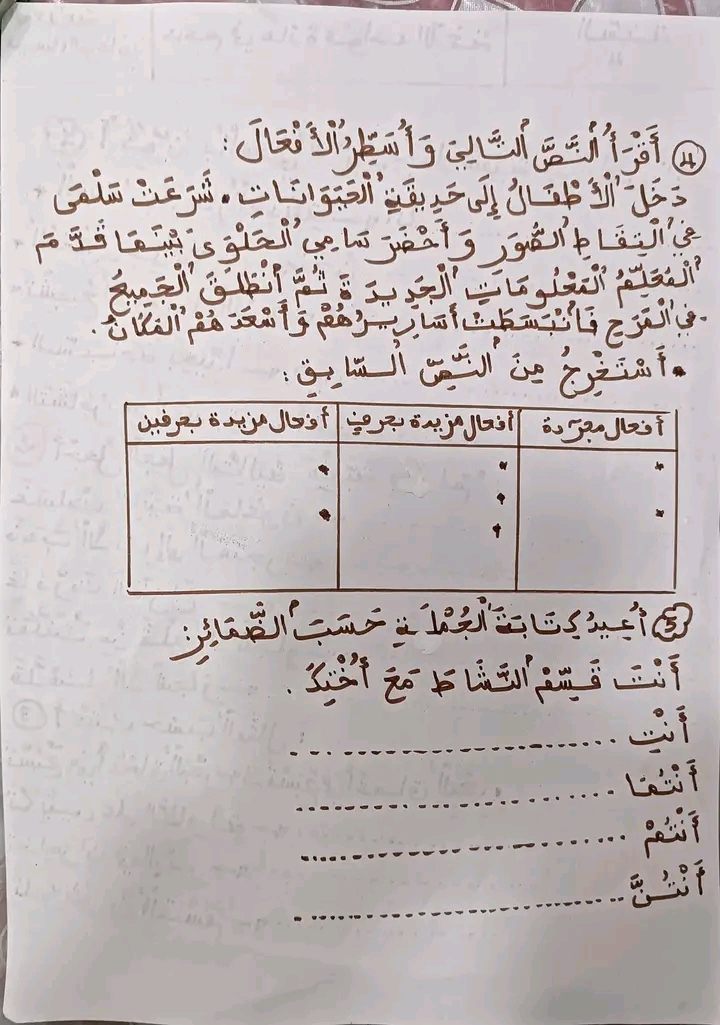 4 أَقْرَأُ النَّصَّ التَّالِيَ وَأُسَطِّرُ الْأَفْعَالَ :
دَخَلَ الْأَطْفَالُ إِلَى حَدِيقَةِ الْحَيَوَانَاتِ . شَرَعَتْ سَلْمَى
فِي الْتِقَاطِ الصُّوَرِ وَأَحْضَرَ سَامِي الْحَلْوَى بَيْنَمَا قَدَّمَ
الْمُعَلِّمُ الْمَعْلُومَاتِ الْجَدِيدَةَ ثُمَّ انْطَلَقَ الْجَمِيعُ
فِي الْمَرَحِ فَانْبَسَطَتْ أَسَارِيرُهُمْ وَأَسْعَدَهُمْ الْمَكَانُ .
• أَسْتَخْرِجُ مِنَ النَّصِّ السَّابِقِ :
أفعال مجرّدة
أفعال مزيدة بحرف
أفعال مزيدة بحرفين
5 أُعِيدُ كِتَابَةَ الْجُمْلَةِ حَسَبَ الضَّمَائِرِ :
أَنْتَ قَسِّمْ النَّشَاطَ مَعَ أُخْتِكَ .
أَنْتِ ........................
أَنْتُمَا ........................
أَنْتُمْ ........................
أَنْتُنَّ ........................